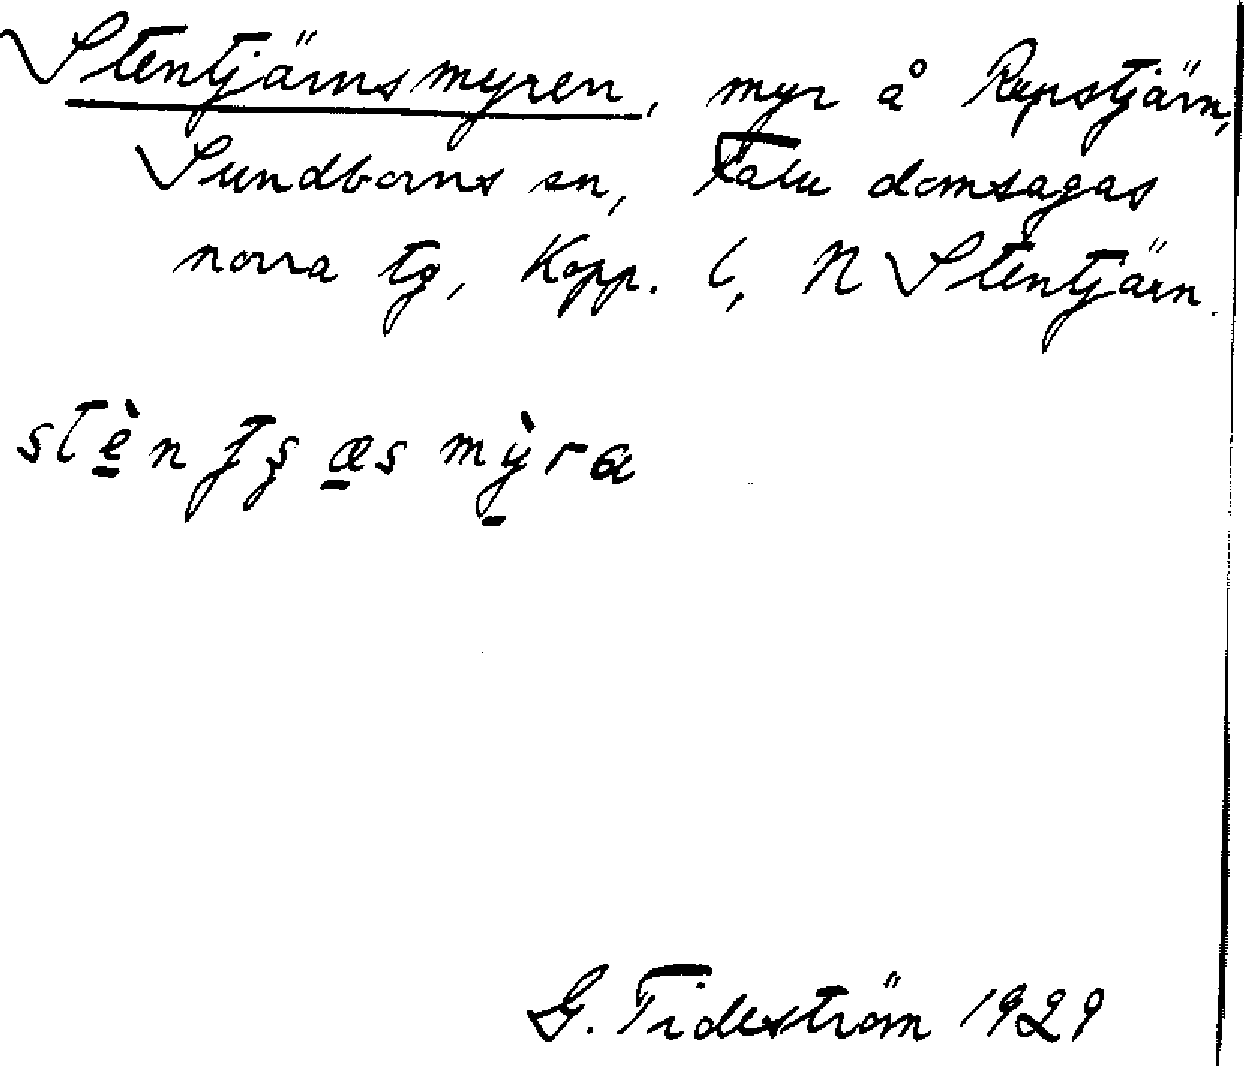 Stentjärnsmyren, myr å Repstjärn,
Sundborns sn, Falu domsagas
norra tg, Kopp. l, N Stentjärn.
G. Tideström 1929